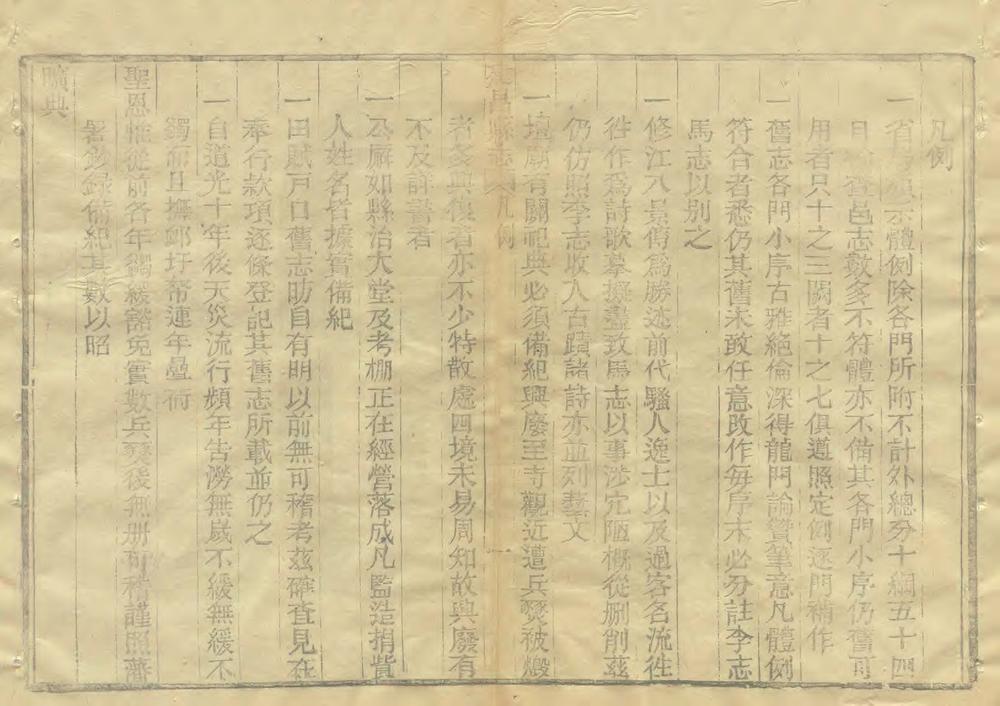 凡例
一省頒體例除各門所附不計外總分十綱五十四
目查邑志數多不符體亦不備其各門小序仍舊可
用者只十之三闕者十之七俱遵照定例逐門補作
一舊志各門小序古雅絕倫深得龍門論贊筆意凡體例
符合者悉仍其舊未敢任意改作每序末必分註李志
馬志以別之
一修江八景舊為勝迹前代騷人逸士以及過客名流徃
徃作爲詩歌摹擬盡致馬志以事涉宂陋概從刪削茲
仍仿照李志收入古蹟諸詩亦並列藝文
一壇廟有關祀典必須備紀興廢至寺觀近遭兵燹被燬
縣志 凡例 一
者多興復者亦不少特散處四境未易周知故興廢有
不及詳書者
一公廨如縣治大堂及考棚正在經營落成凡監造捐貲
人姓名者據實備紀
一田賦戸口舊志昉自有明以前無可稽考茲確查見在
奉行款項逐條登記其舊志所載並仍之
一自道光十年後天災流行頻年告澇無歲不緩無緩不
蠲而且撫䘏圩帑連年疊荷
聖恩惟從前各年蠲緩豁免實數兵燹後無册可稽謹照藩
署鈔錄備紀其數以昭
曠典